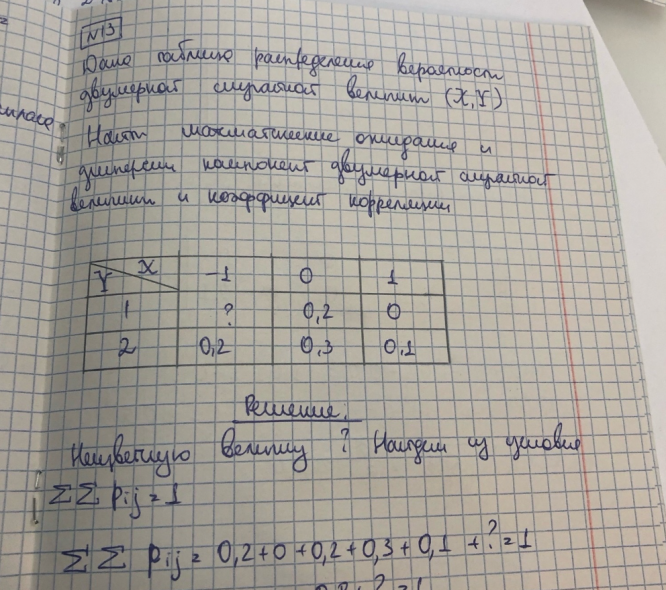 N13
Дана таблица распределения вероятности
двумерной случайной величины (X,Y)
Найти математические ожидания и
дисперсии компонент двумерной случайной
величины и коэффициент корреляции
Y X -1 0 1
1 ? 0,2 0
2 0,2 0,3 0,1
Решение:
Неизвестную величину ? Найдем из условия
ΣΣ pij = 1
ΣΣ pij = 0,2+0+0,2+0,3+0,1 +?=1